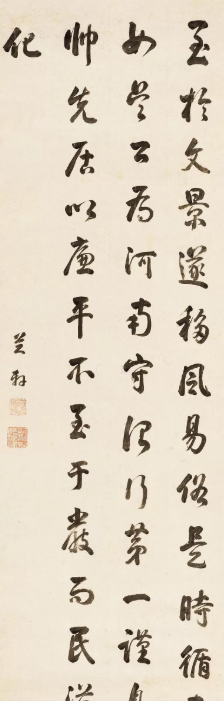 至於文景遂移風易俗是時循
如吳公為河南守治行第一謹身
帥先居以廉平不至于嚴而民從
化
芝軒